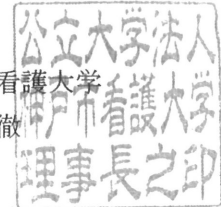 看護大学
徹
公立大学法人
神戸市看護大学
理事長之印